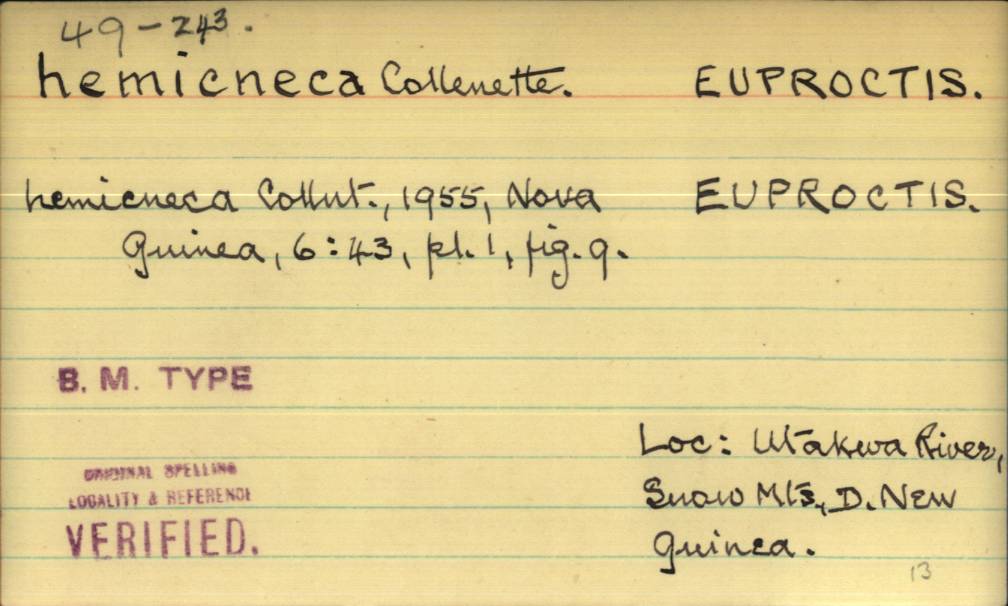 49-243.
hemicneca Collenette. EUPROCTIS.
hemicneca Collnt., 1955, Nova EUPROCTIS.
Guinea, 6:43, pl. 1, fig. 9.
B. M. TYPE
Loc: Utakwa River,
ORIGINAL SPELLING
LOCALITY & REFERENCE
Snow Mts., D. New
VERIFIED.
Guinea.
13